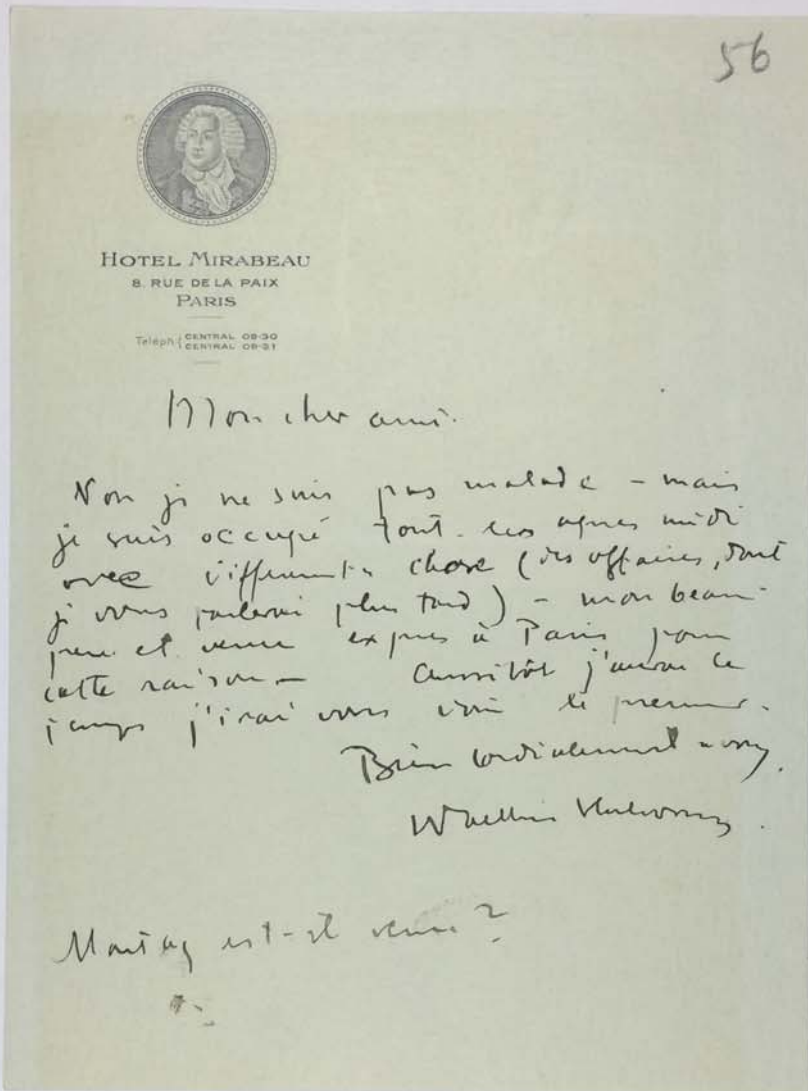 56
HOTEL MIRABEAU
8. RUE DE LA PAIX
PARIS
Teléph: { CENTRAL 09-30
CENTRAL 09-31
Mon cher ami.
Non je ne suis pas malade – mais
je suis occupé tout les apres midi
avec differents chose (des affaires, dont
je vous parlerai plus tard) – mon beau
pere et venu expres à Paris pour
cette raison – Aussitôt j'aurai le
temps j'irai vous voir le premier.
Bien cordialement a vous,
Montag est-il venu?